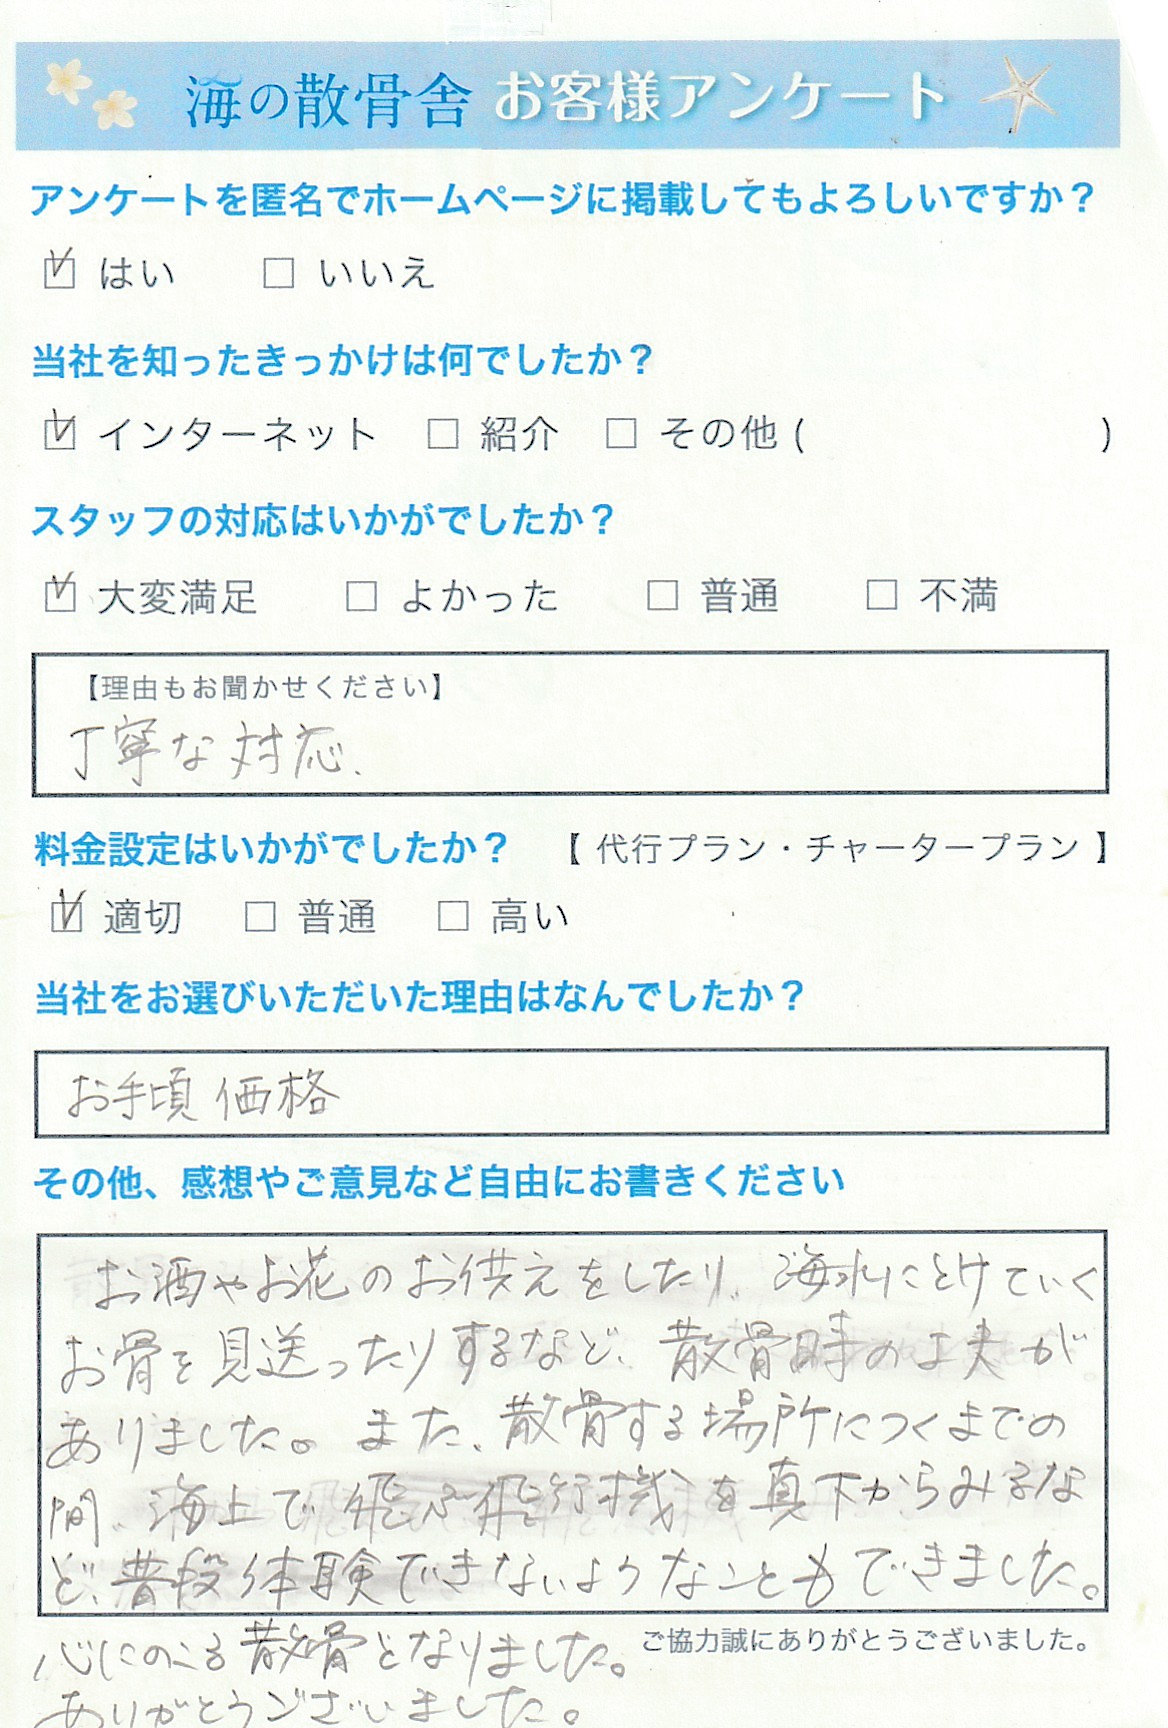 海の散骨舎 お客様アンケート
アンケートを匿名でホームページに掲載してもよろしいですか？
☑ はい □ いいえ
当社を知ったきっかけは何でしたか？
☑ インターネット □ 紹介 □ その他 ( )
スタッフの対応はいかがでしたか？
☑ 大変満足 □ よかった □ 普通 □ 不満
【理由もお聞かせください】
丁寧な対応.
料金設定はいかがでしたか？ 【 代行プラン・チャータープラン 】
☑ 適切 □ 普通 □ 高い
当社をお選びいただいた理由はなんでしたか？
お手頃価格
その他、感想やご意見など自由にお書きください
お酒やお花のお供えをしたり、海水にとけていく
お骨を見送ったりするなど、散骨時の工夫が
ありました。また、散骨する場所につくまでの
間、海上で飛ぶ飛行機を真下からみるな
ど、普段体験できないようなこともできました。
心にのこる散骨となりました。
ご協力誠にありがとうございました。
ありがとうございました。